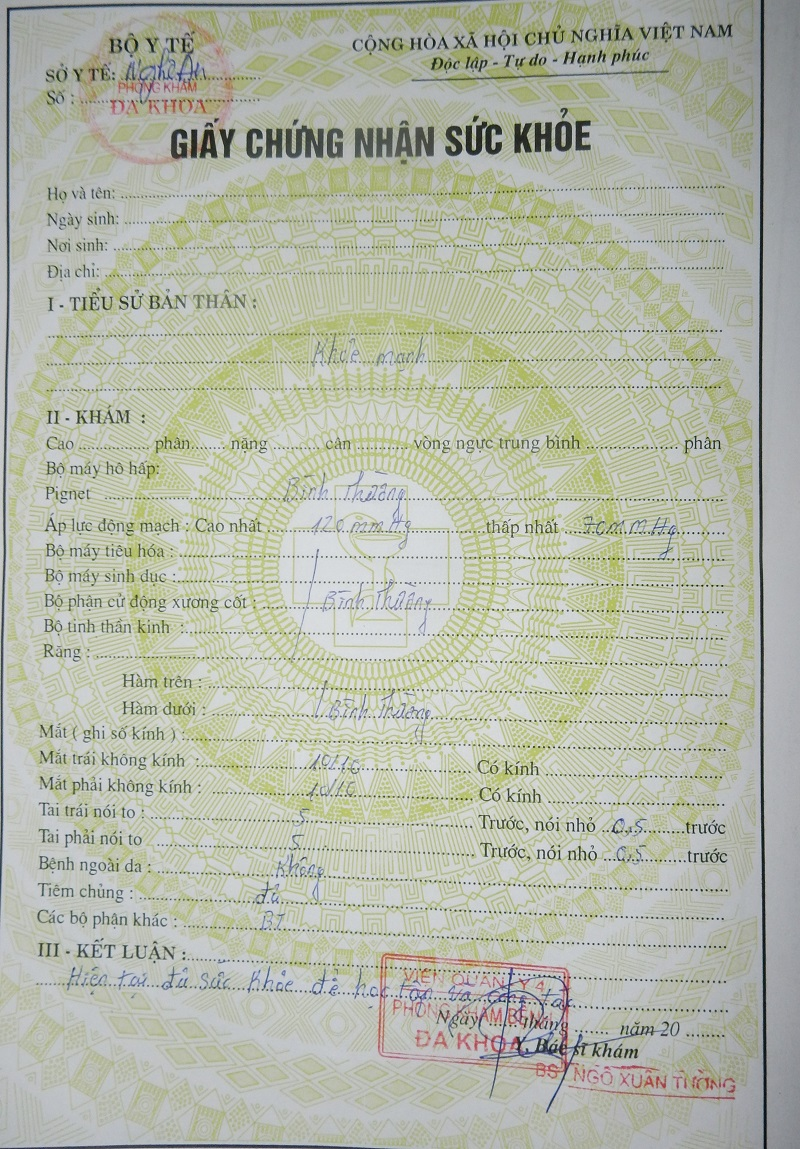 BỘ Y TẾ
CỘNG HÒA XÃ HỘI CHỦ NGHĨA VIỆT NAM
SỞ Y TẾ: Nghệ An
Độc lập - Tự do - Hạnh phúc
Số :
PHÒNG KHÁM
ĐA KHOA
GIẤY CHỨNG NHẬN SỨC KHỎE
Họ và tên:
Ngày sinh:
Nơi sinh:
Địa chỉ:
I - TIỂU SỬ BẢN THÂN :
Khỏe mạnh
II - KHÁM :
Cao phân nặng cân vòng ngực trung bình phân
Bộ máy hô hấp:
Pignet Bình Thường
Áp lực động mạch : Cao nhất 120 mmHg thấp nhất 70mmHg
Bộ máy tiêu hóa :
Bộ máy sinh dục :
Bộ phận cử động xương cốt : Bình Thường
Bộ tinh thần kinh :
Răng :
Hàm trên :
Hàm dưới : Bình Thường
Mắt ( ghi số kính ) :
Mắt trái không kính : 10/10 Có kính
Mắt phải không kính : 10/10 Có kính
Tai trái nói to : 5 Trước, nói nhỏ 0,5 trước
Tai phải nói to 5 Trước, nói nhỏ 0,5 trước
Bệnh ngoài da : Không
Tiêm chủng : đủ
Các bộ phận khác : BT
III - KẾT LUẬN :
Hiện tại đủ sức khỏe để học tập và công tác
VIỆN QUÂN Y 4
Ngày tháng năm 20
PHÒNG KHÁM BỆNH
ĐA KHOA
Y, Bác sĩ khám
BS NGÔ XUÂN THƯỜNG